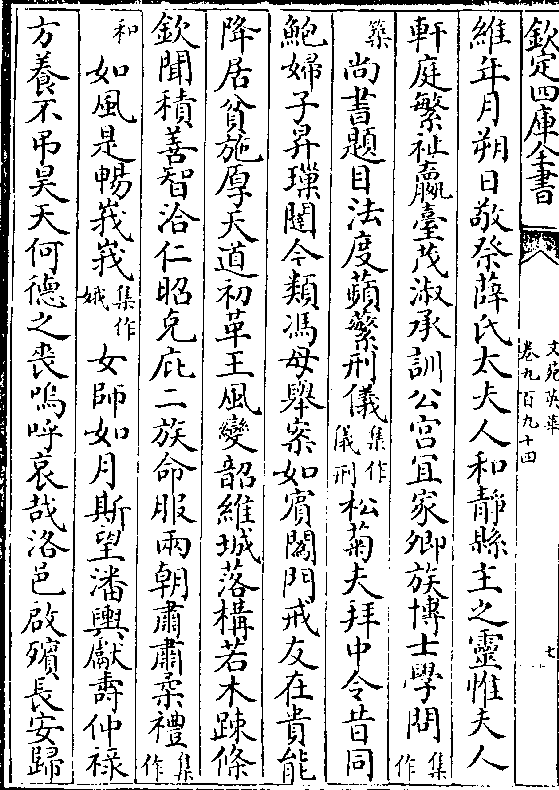 欽定四庫全書
文苑英華
卷九百九十四
七
維年月朔日敬祭薛氏太夫人和靜縣主之靈惟夫人
軒庭繁祉嬴臺茂淑承訓公宫冝家卿族博士學問集作
築尚書題目法度蘋蘩刑儀集作儀刑松菊夫拜中令昔同
鮑婦子昇璅闥今類馮母舉案如賓闔門戒友在貴能
降居貧施厚天道初革王風變韶維城落構若木踈條
欽聞積善智洽仁昭克庇二族命服兩朝肅肅柔禮集作
和如風是暢峩峩集作娥女師如月斯望潘輿獻壽仲祿
方養不弔昊天何德之喪嗚呼哀哉洛邑啟殯長安歸